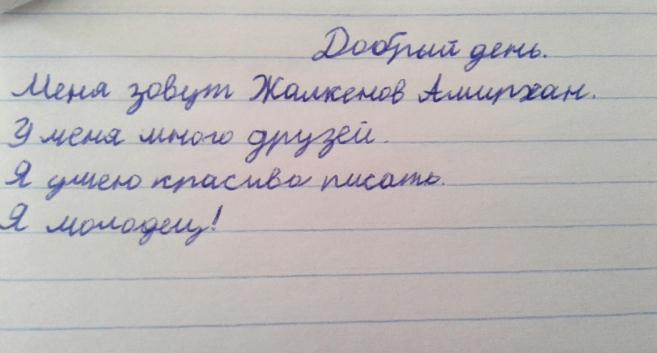 Добрый день.
Меня зовут Жалкенов Амирхан.
У меня много друзей.
Я умею красиво писать.
Я молодец!